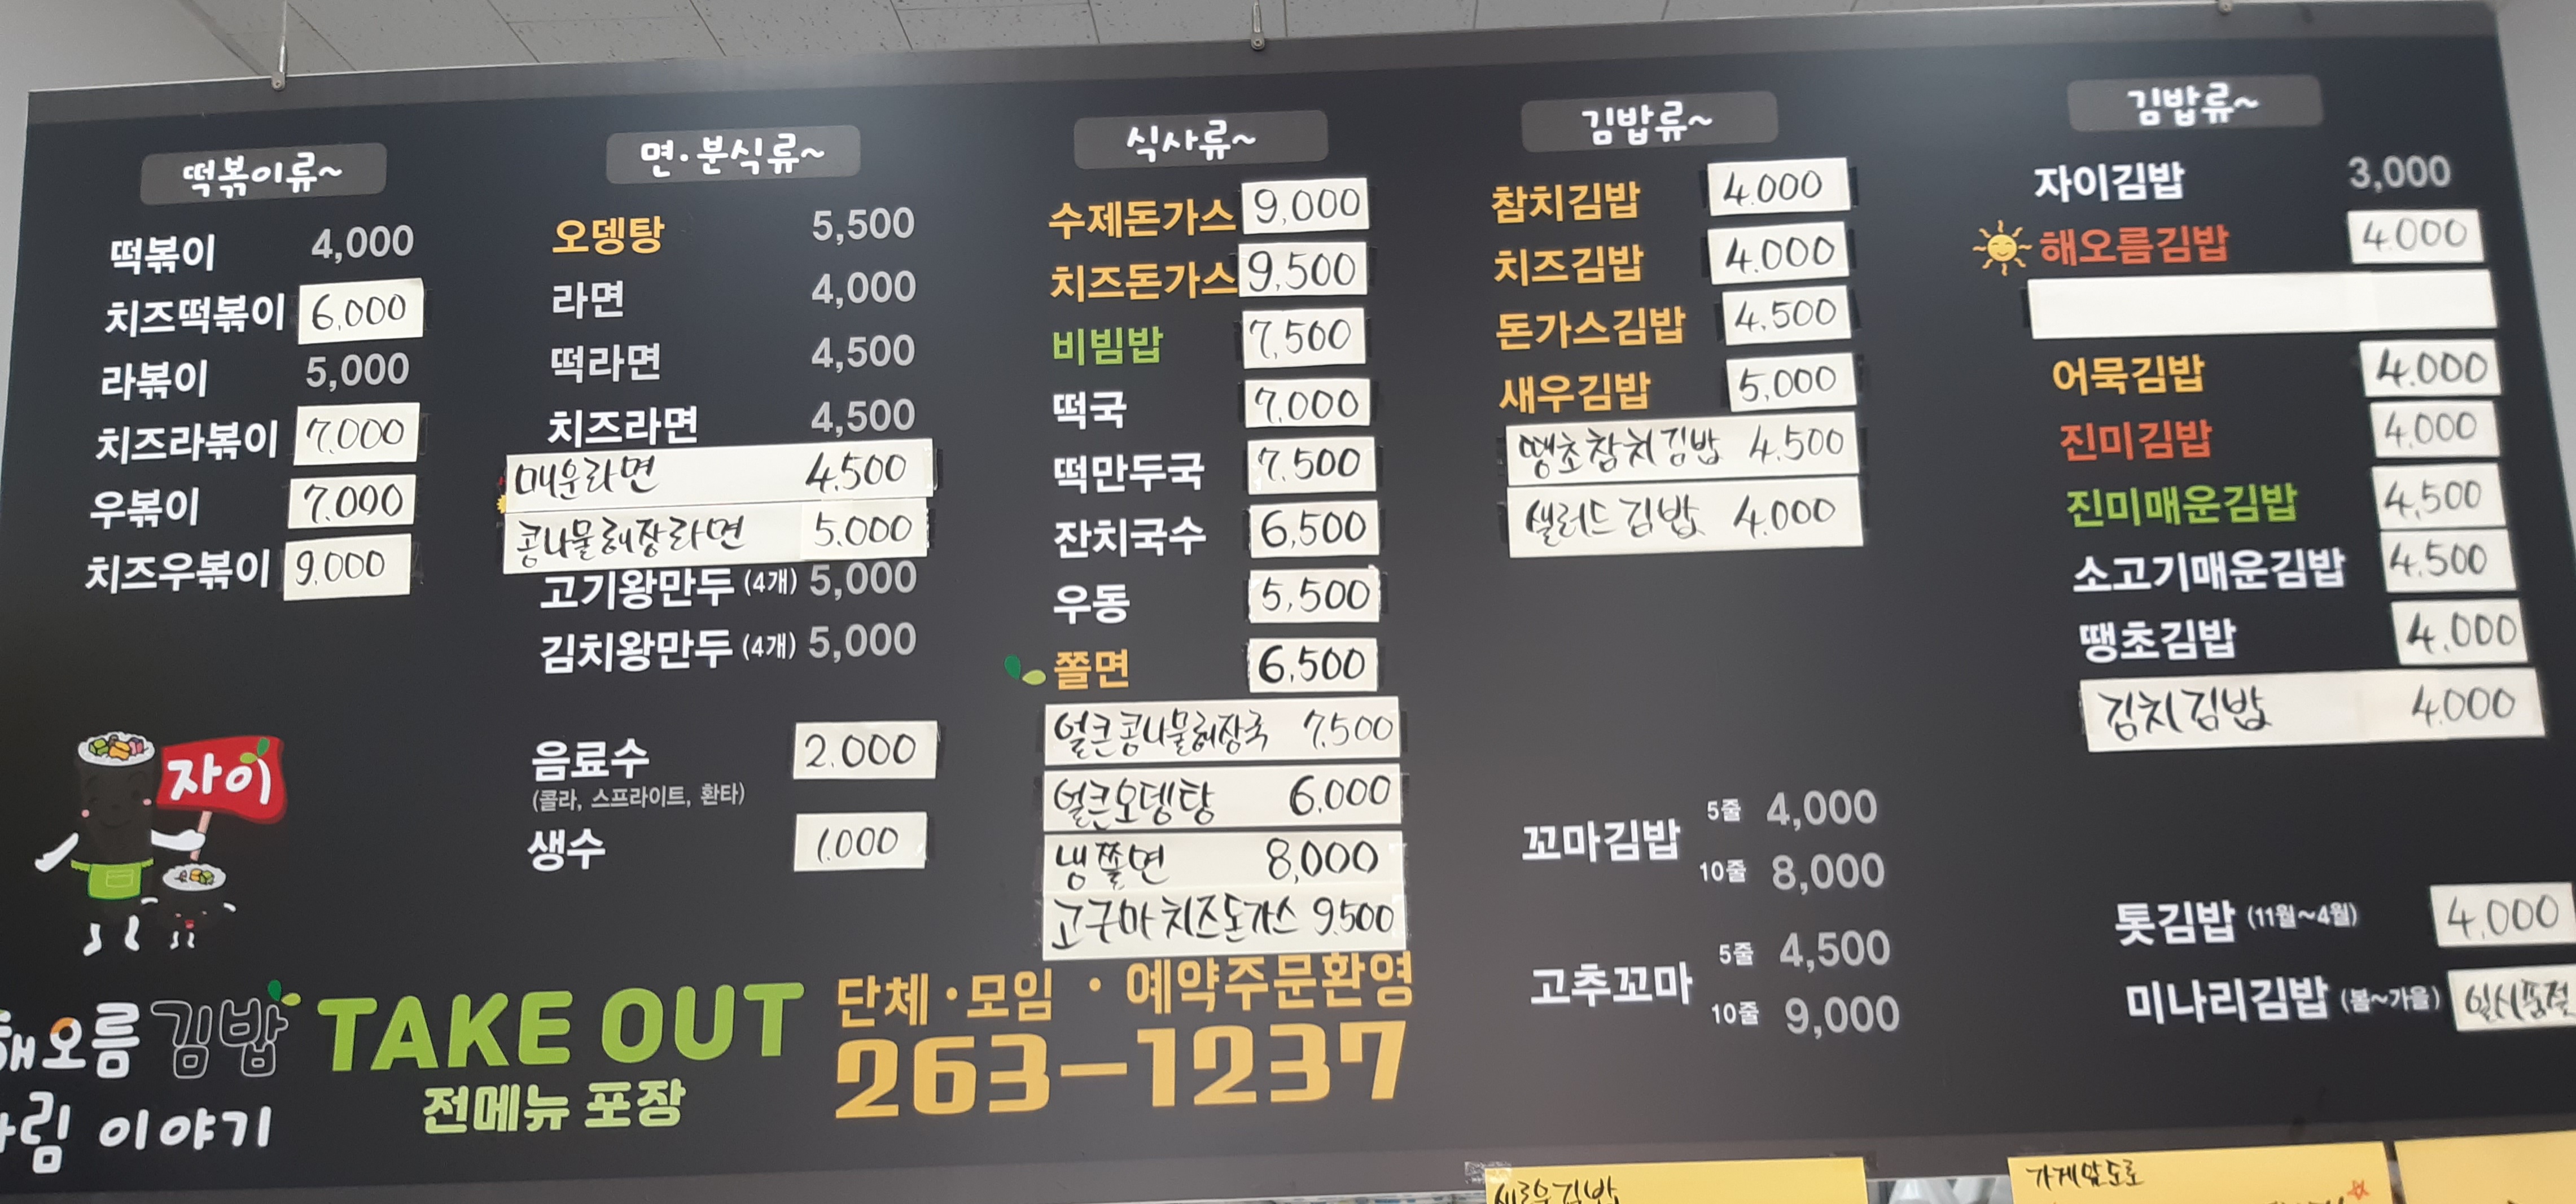 떡볶이류~
떡볶이 4,000
치즈떡볶이 6,000
라볶이 5,000
치즈라볶이 7.000
우볶이 7.000
치즈우볶이 9.000
자이
면·분식류~
오뎅탕 5,500
라면 4,000
떡라면 4,500
치즈라면 4,500
매운라면 4.500
콩나물해장라면 5.000
고기왕만두 (4개) 5,000
김치왕만두 (4개) 5,000
음료수 2.000
(콜라, 스프라이트, 환타)
생수 1.000
식사류~
수제돈가스 9,000
치즈돈가스 9,500
비빔밥 7,500
떡국 7.000
떡만두국 7.500
잔치국수 6,500
우동 5,500
쫄면 6,500
얼큰콩나물해장국 7.500
얼큰오뎅탕 6.000
냉쫄면 8,000
고구마치즈돈가스 9.500
김밥류~
참치김밥 4.000
치즈김밥 4.000
돈가스김밥 4.500
새우김밥 5,000
땡초참치김밥 4.500
샐러드김밥 4.000
꼬마김밥 5줄 4,000
10줄 8,000
고추꼬마 5줄 4,500
10줄 9,000
김밥류~
자이김밥 3,000
해오름김밥 4.000
어묵김밥 4.000
진미김밥 4.000
진미매운김밥 4,500
소고기매운김밥 4.500
땡초김밥 4.000
김치김밥 4.000
톳김밥 (11월~4월) 4.000
미나리김밥 (봄~가을) 일시품절
해오름김밥
림 이야기
TAKE OUT
전메뉴 포장
단체·모임 · 예약주문환영
263-1237
가게앞도로